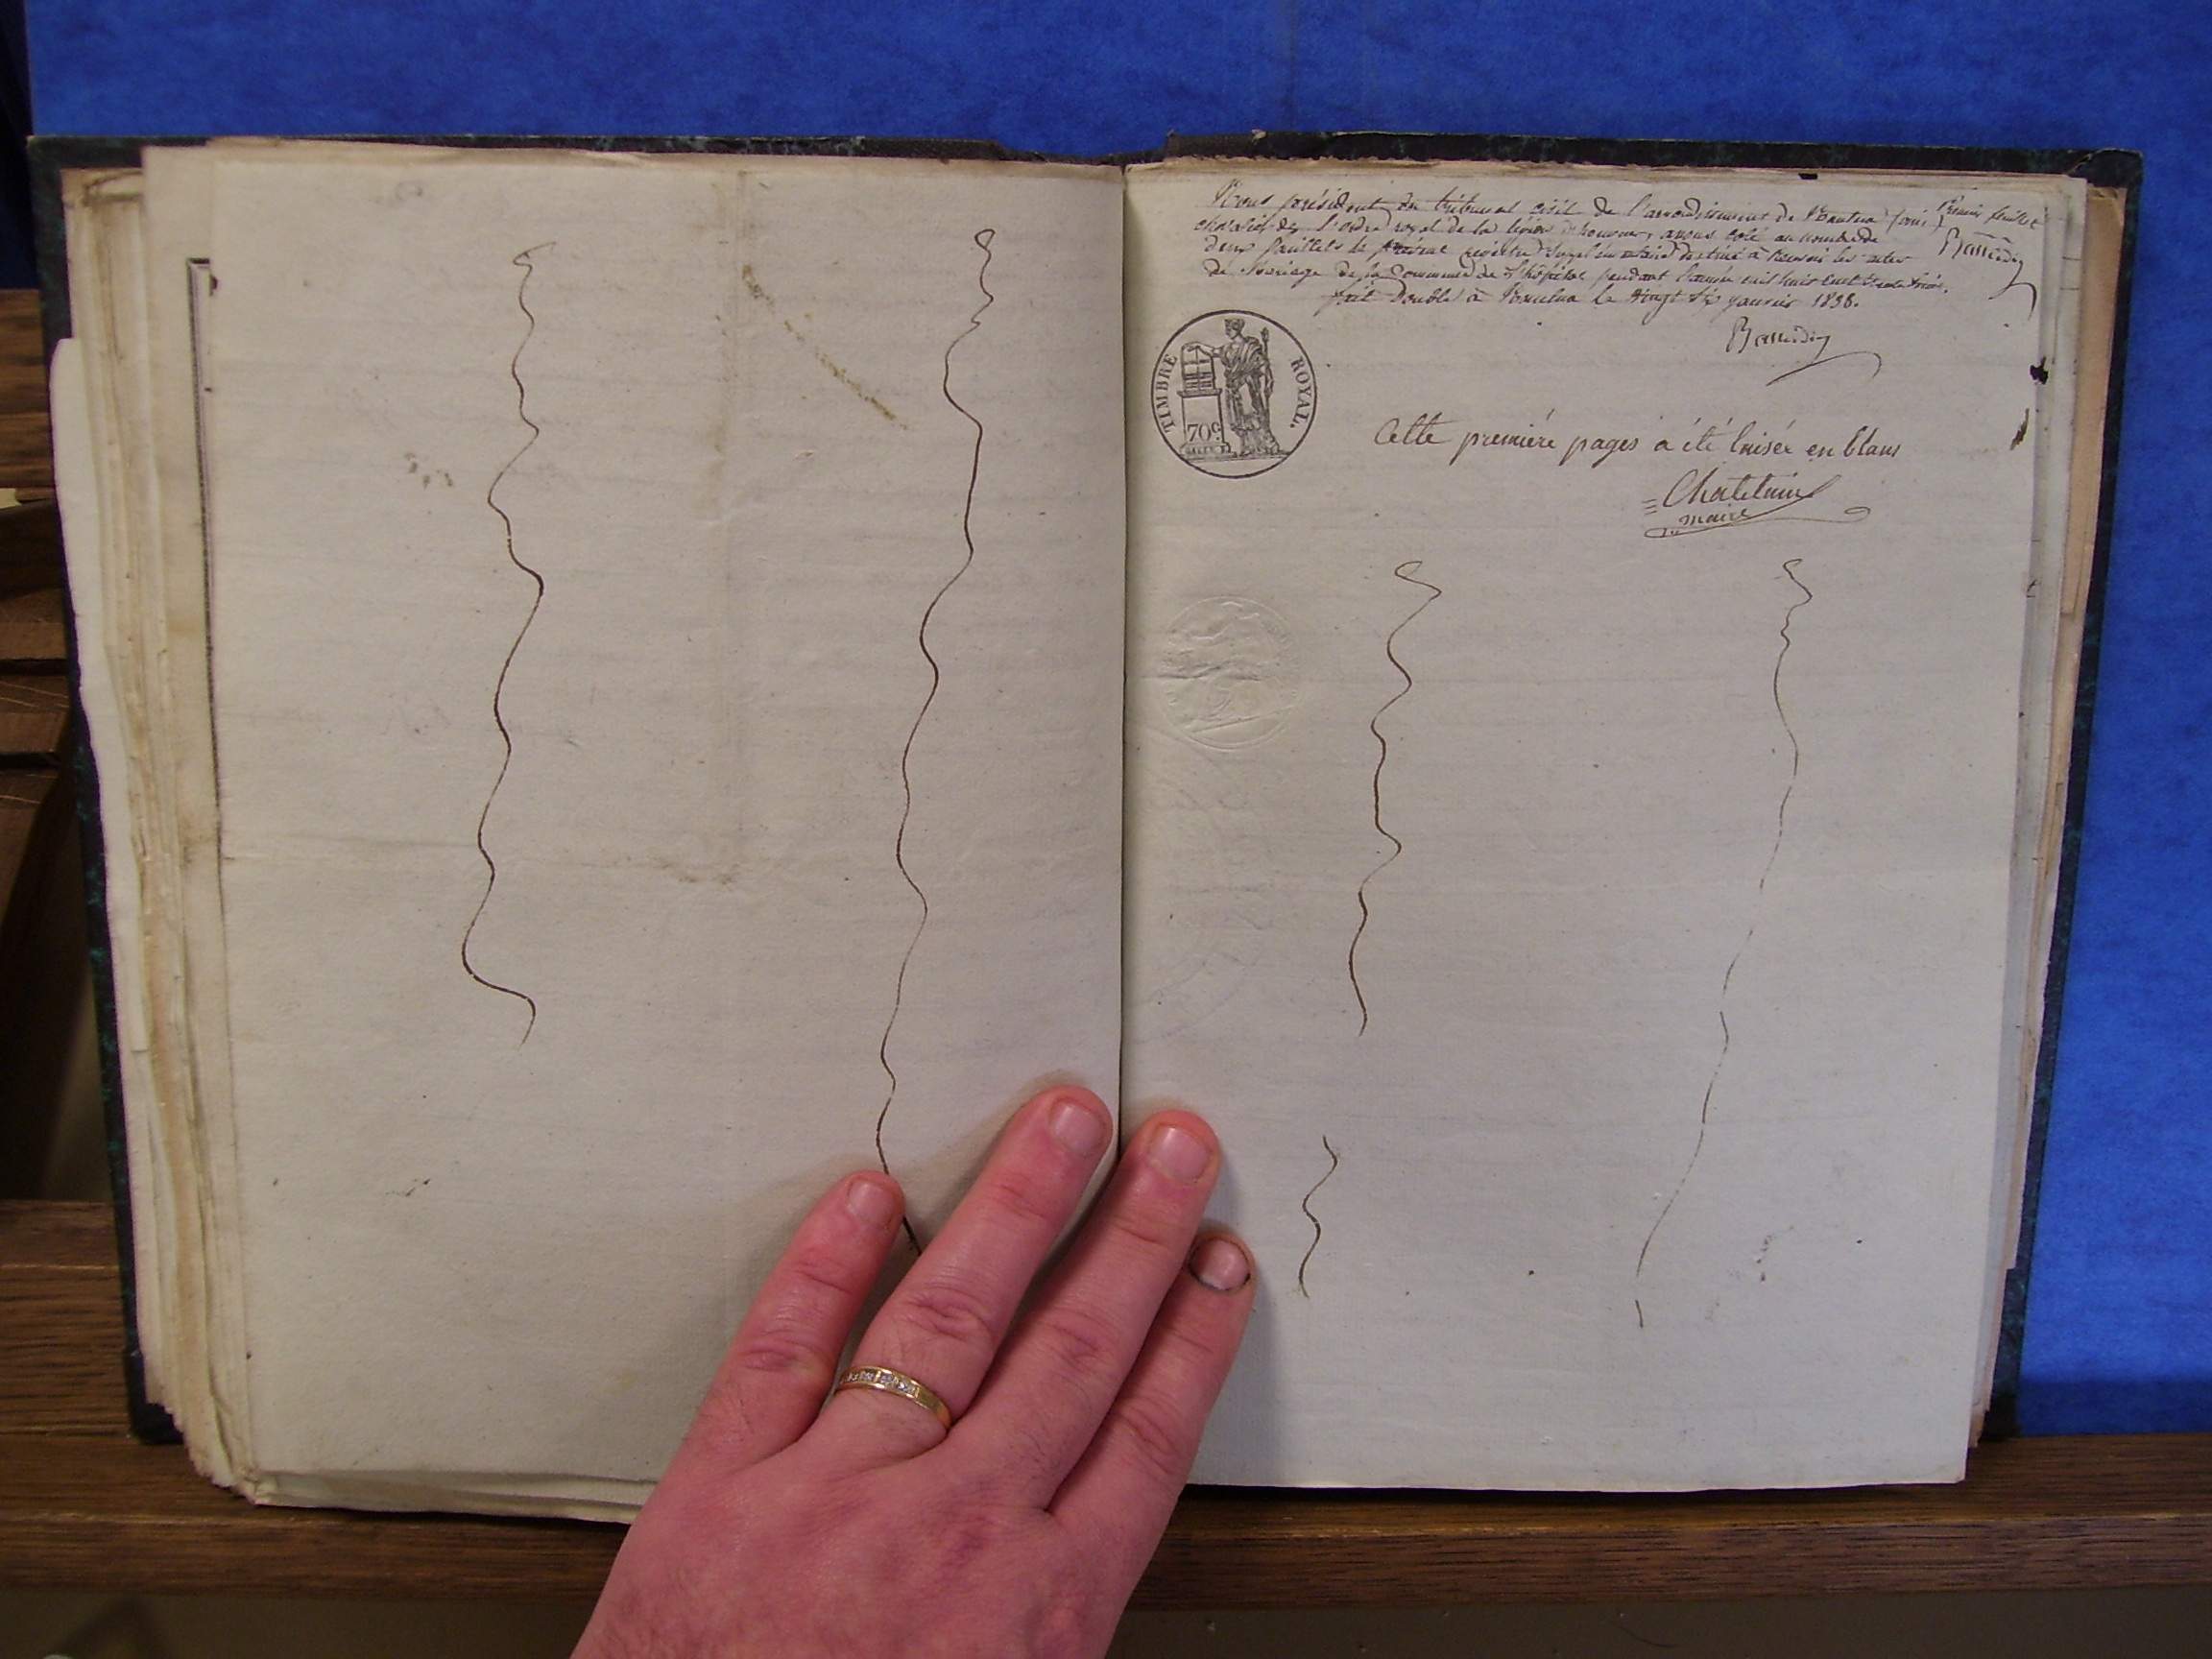 Nous président du tribunal civil de l'arrondissement de Nantua (ain) Premier feuillet
chevalier de l'ordre royal de la légion d'honneur, avons coté au nombre de
deux feuillets le présent registre supplémentaire destiné à recevoir les actes
de Mariage de la Commune de l'hôpital pendant l'année mil huit cent trente
fait double à Nantua le vingt six janvier 1838.
TIMBRE ROYAL.
70 c.
Cette premiére pages a été laisée en blanc
Chatelain
maire